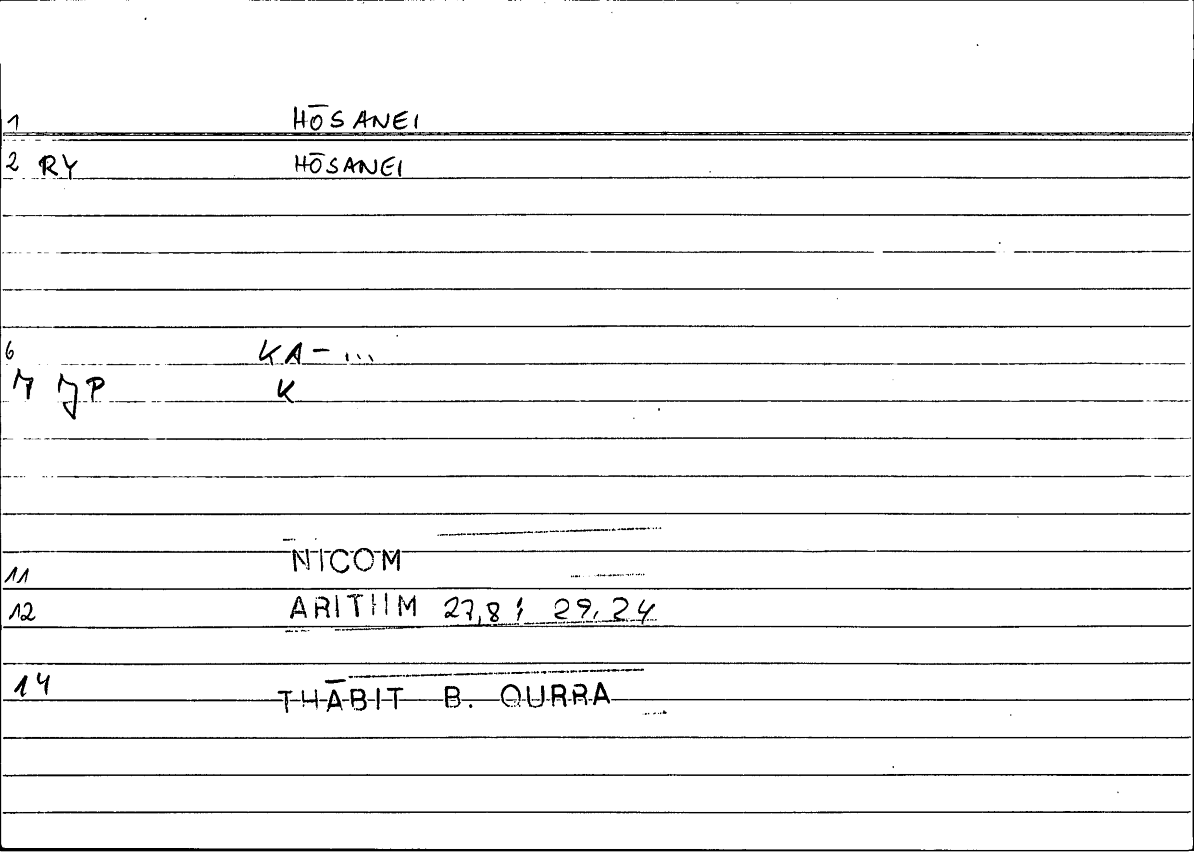 1 HŌSANEI
2 RY HŌSANEI
6 KA- ...
7 JP K
11 NICOM
12 ARITHM 27,8; 29,24
14 THĀBIT B. QURRA